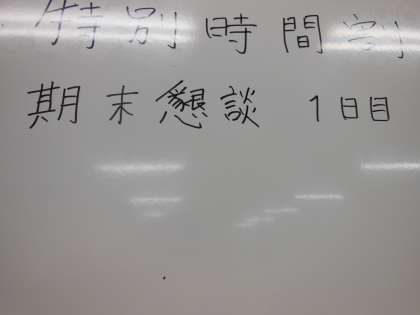 特別時間割
期末懇談 1日目